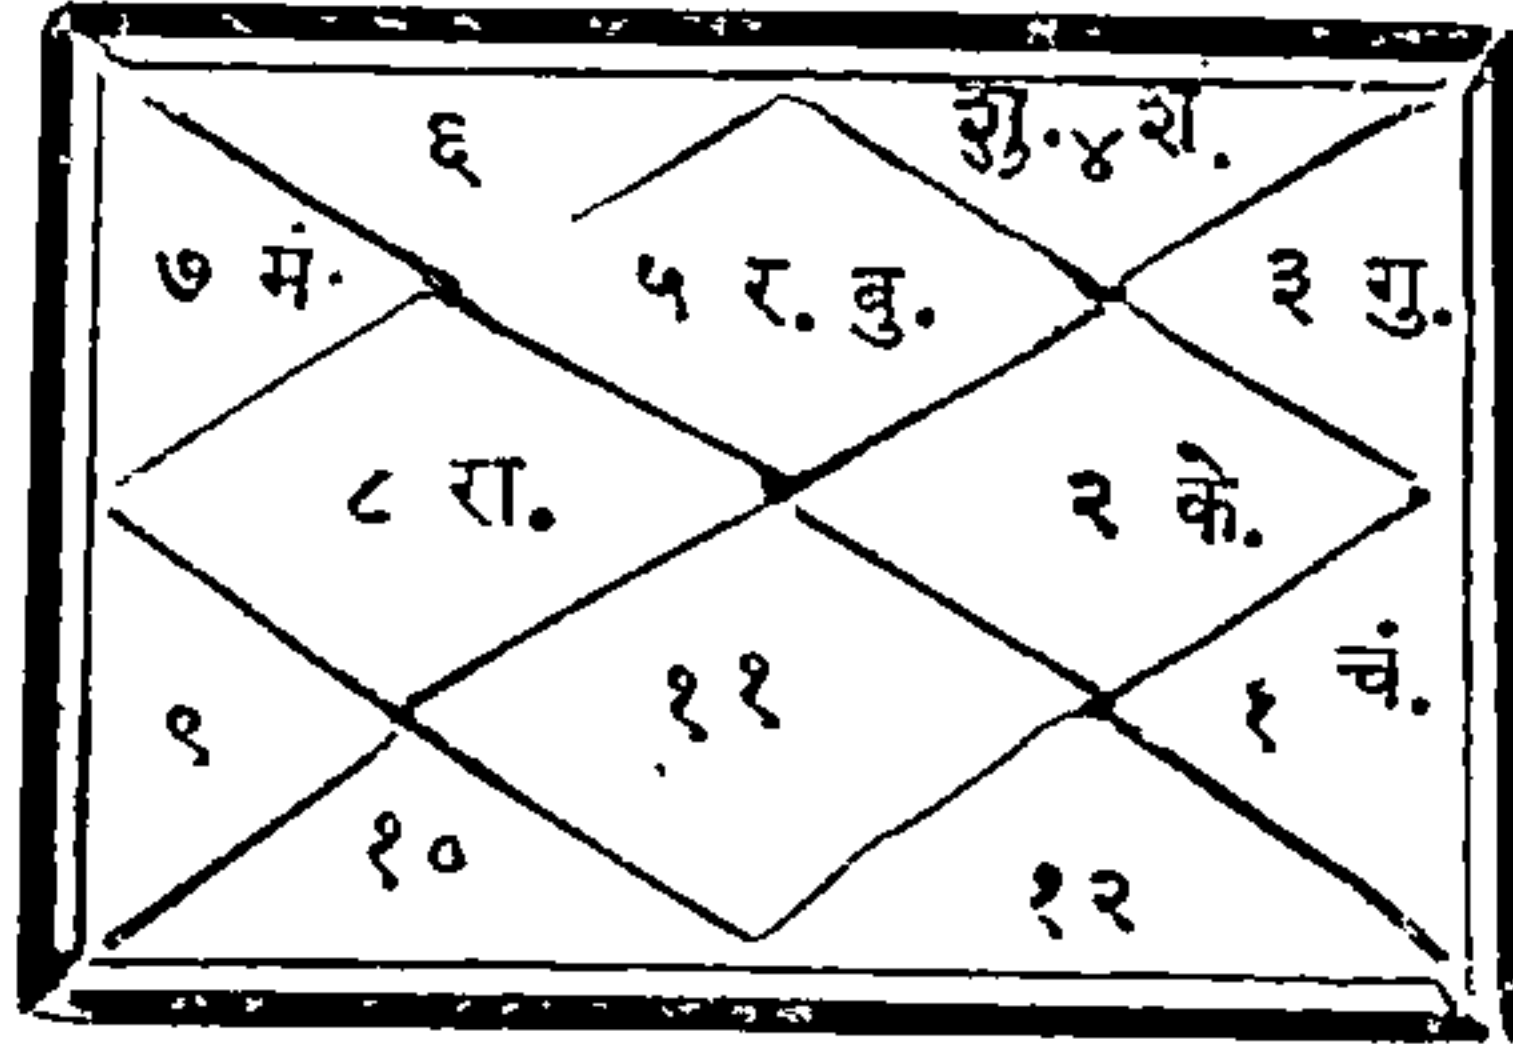 ६
शु. ४ श.
७ मं.
५ र. बु.
३ गु.
८ रा.
२ के.
९
११
१ चं.
१०
१२